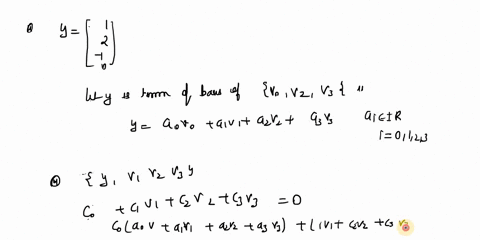 y = [ 1
2
-1
0 ]
Let y is term of basis of {v₀, v₂, v₃} is
y = a₀v₀ + a₁v₁ + a₂v₂ + a₃v₃ aᵢ ∈ ℝ
i=0,1,2,3
{ y, v₁ v₂ v₃ }
C₀ + C₁v₁ + C₂v₂ + C₃v₃ = 0
C₀(a₀v + a₁v₁ + a₂v₂ + a₃v₃) + (1v₁ + C₂v₂ + C₃v₃